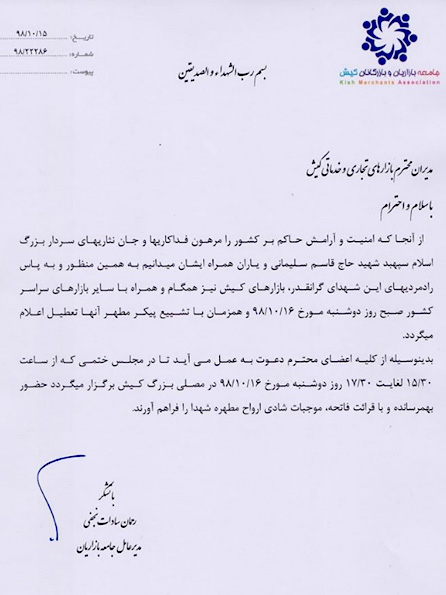 جامعه بازاریان و بازرگانان کیش
Kish Merchants Association
تاریخ: ۹۸/۱۰/۱۵
شماره: ۹۸/۲۲۲۸۶
پیوست:
بسم رب الشهداء و الصدیقین
مدیران محترم بازارهای تجاری و خدماتی کیش
با سلام و احترام
از آنجا که امنیت و آرامش حاکم بر کشور را مرهون فداکاریها و جان نثاریهای سردار بزرگ
اسلام سپهبد شهید حاج قاسم سلیمانی و یاران همراه ایشان میدانیم به همین منظور و به پاس
رادمردیهای این شهدای گرانقدر، بازارهای کیش نیز همگام و همراه با سایر بازارهای سراسر
کشور صبح روز دوشنبه مورخ ۹۸/۱۰/۱۶ و همزمان با تشییع پیکر مطهر آنها تعطیل اعلام
میگردد.
بدینوسیله از کلیه اعضای محترم دعوت به عمل می آید تا در مجلس ختمی که از ساعت
۱۵/۳۰ لغایت ۱۷/۳۰ روز دوشنبه مورخ ۹۸/۱۰/۱۶ در مصلی بزرگ کیش برگزار میگردد حضور
بهمرسانده و با قرائت فاتحه، موجبات شادی ارواح مطهره شهدا را فراهم آورند.
با تشکر
رحمان سادات نجفی
مدیرعامل جامعه بازاریان